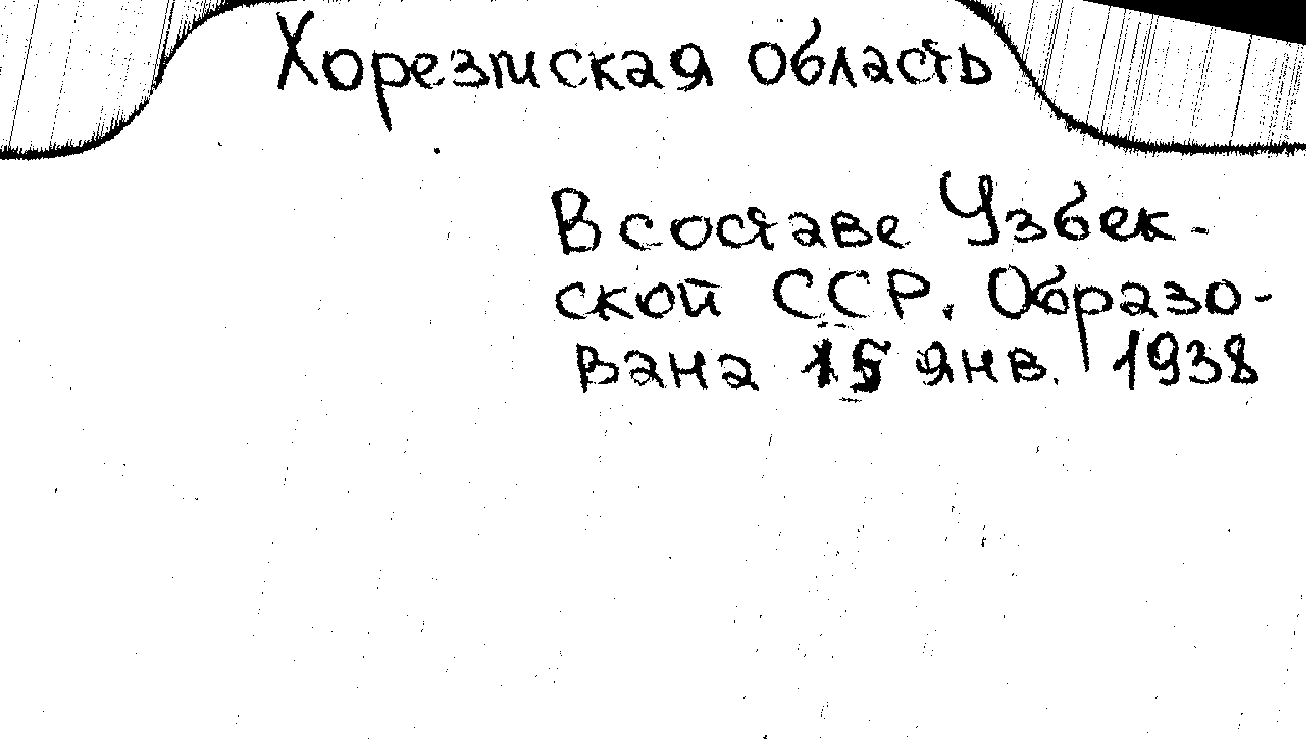 Хорезмская область
В составе Узбек-
ской ССР. Образо-
вана 15 янв. 1938